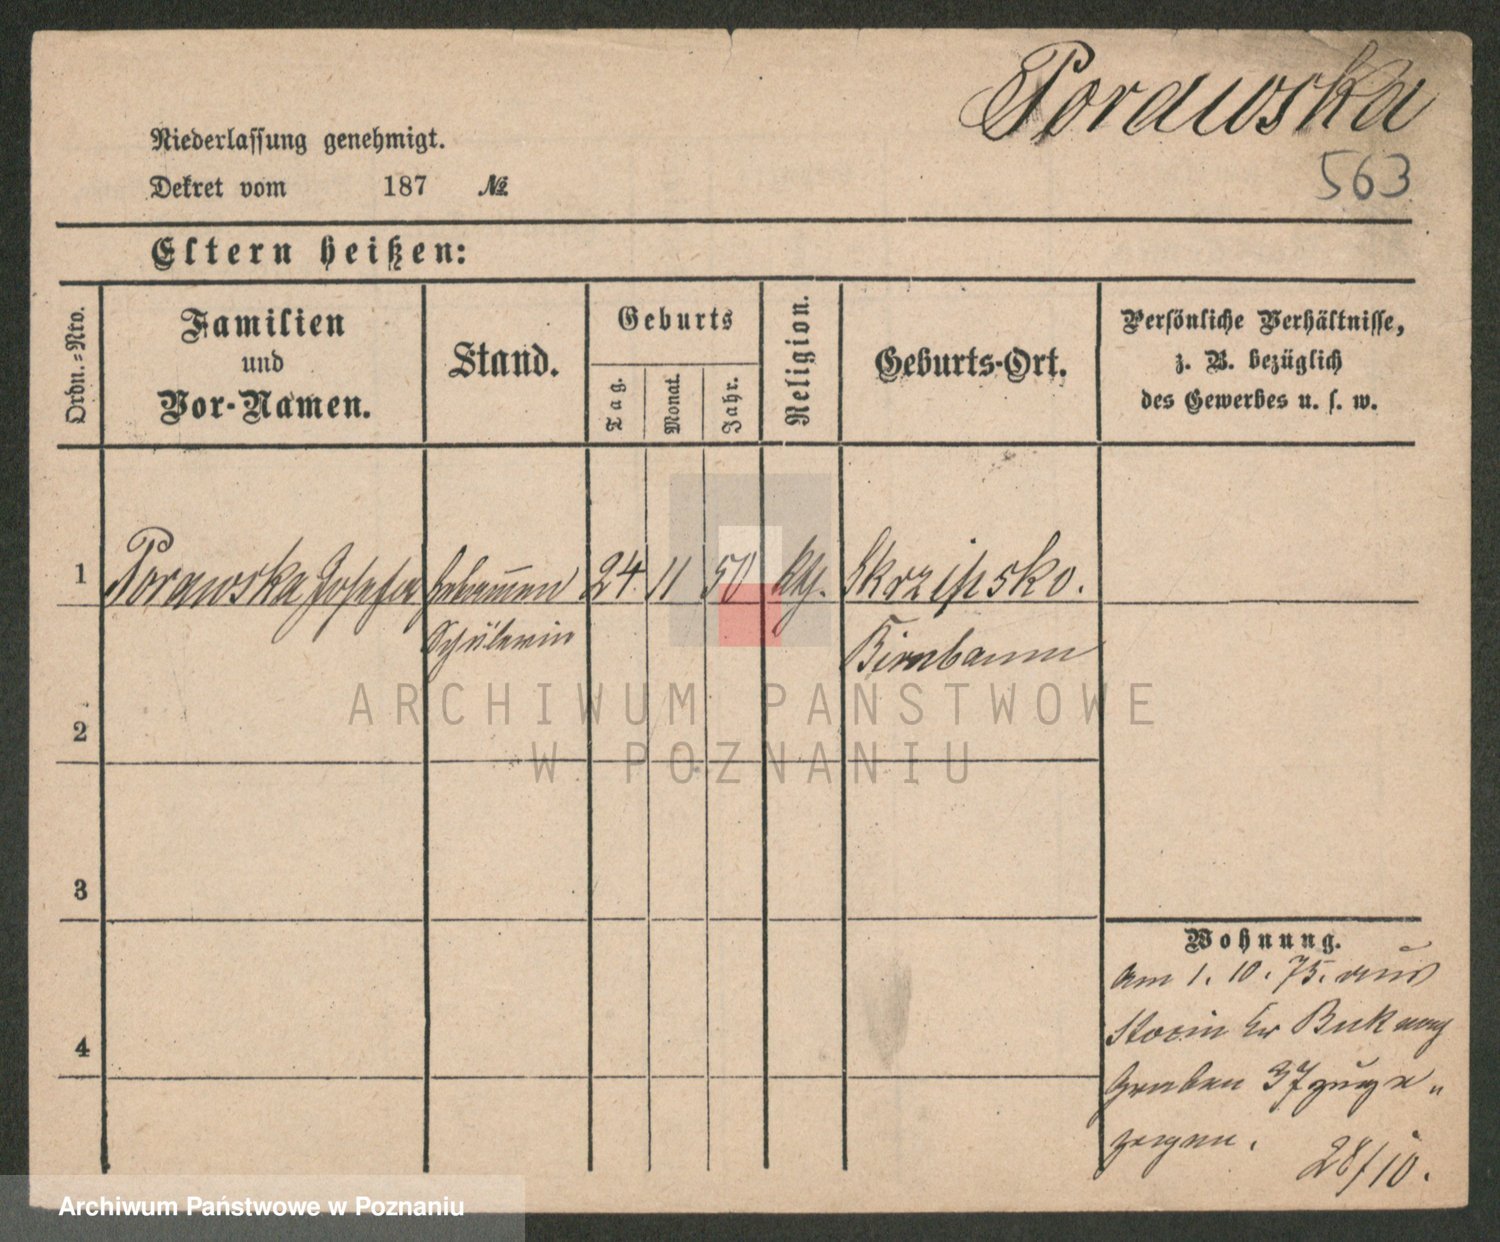 Porawska
563
Niederlassung genehmigt.
Dekret vom 187 №
Eltern heißen:
Ordn.-Nro.
Familien
und
Vor-Namen.
Stand.
Geburts
Tag.
Monat.
Jahr.
Religion.
Geburts-Ort.
Persönliche Verhältnisse,
z. B. bezüglich
des Gewerbes u. s. w.
1 Porawska Josefa Hebammen 24 11 50 kth. Skrzipsko.
Schülerin Birnbaum
2
3
4
Wohnung.
Am 1. 10. 75. aus
Kr Buk nach
Graben 37 zuge„
zogen.
28/10.
ARCHIWUM PAŃSTWOWE
W POZNANIU
Archiwum Państwowe w Poznaniu